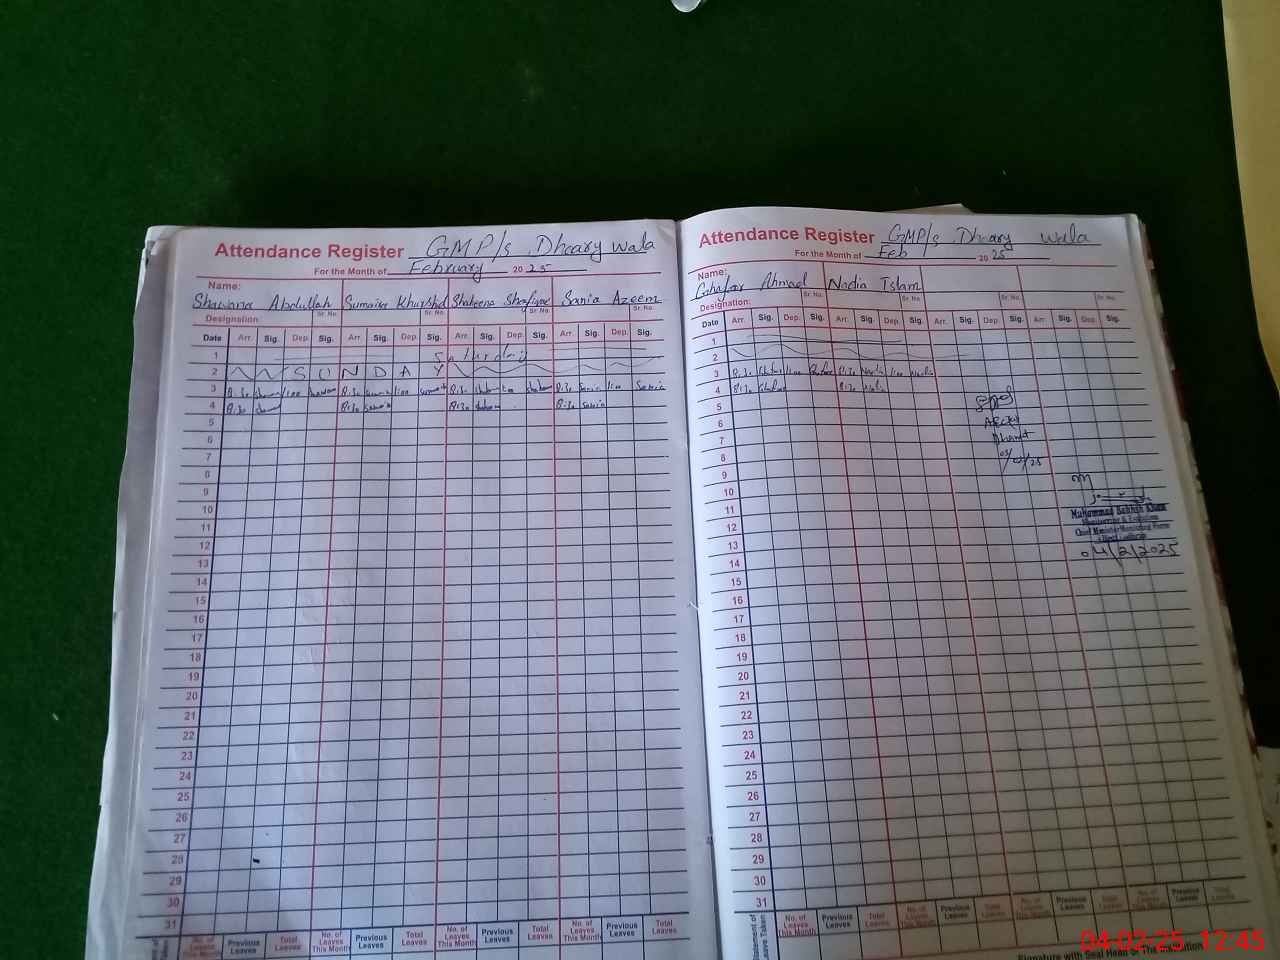 Attendance Register GMP/s Dheary wala
For the Month of February 2025
Name:
Shawana Abdullah Sumaira Khurshid Shaheena Shafique Sania Azeem
Sr. No. Sr. No. Sr. No. Sr. No.
Designation
Date Arr. Sig. Dep. Sig. Arr. Sig. Dep. Sig. Arr. Sig. Dep. Sig. Arr. Sig. Dep. Sig.
1 Saturday
2 SUNDAY
3 8:30 1:00 8:30 1:00 8:30 1:00 8:30 Sania 1:00 Sania
4 8:30 8:30 8:30 8:30 Sania
5
6
7
8
9
10
11
12
13
14
15
16
17
18
19
20
21
22
23
24
25
26
27
28
29
30
31
No. of Leaves This Month Previous Leaves Total Leaves No. of Leaves This Month Previous Leaves Total Leaves No. of Leaves This Month Previous Leaves Total Leaves No. of Leaves This Month Previous Leaves Total Leaves
Attendance Register GMP/s Dheary wala
For the Month of Feb 2025
Name:
Ghafar Ahmad Nadia Islam
Sr. No. Sr. No. Sr. No. Sr. No.
Designation:
Date Arr. Sig. Dep. Sig. Arr. Sig. Dep. Sig. Arr. Sig. Dep. Sig. Arr. Sig. Dep. Sig.
1
2
3 8:30 Ghafar 1:00 Ghafar 8:30 Nadia 1:00 Nadia
4 8:30 Ghafar 8:30 Nadia
5
6
7
8
9
10
11
12
13
14
15
16
17
18
19
20
21
22
23
24
25
26
27
28
29
30
31
Muhammad Khan
Monitoring & Evaluation
Chief Minister Monitoring Force
04/2/2025
Leave Taken No. of Leaves This Month Previous Leaves Total Leaves No. of Leaves This Month Previous Leaves Total Leaves No. of Leaves This Month Previous Leaves Total Leaves No. of Leaves This Month Previous Leaves Total Leaves
Signature with Seal Head of The Institution
04-02-25 12:45